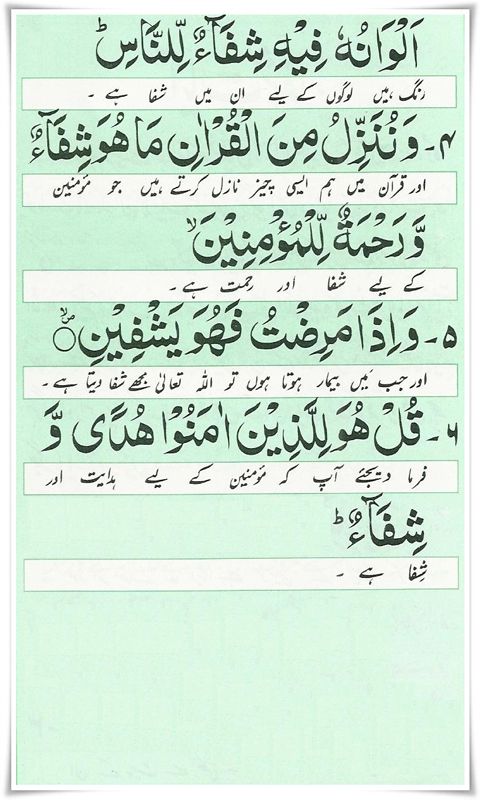 اَلْوَانُهٗ فِيْهِ شِفَآءٌ لِّلنَّاسِ ؕ
رنگ ہیں لوگوں کے لیے ان میں شفا ہے ۔
۴۔ وَنُنَزِّلُ مِنَ الْقُرْاٰنِ مَا هُوَ شِفَآءٌ
اور قرآن میں ہم ایسی چیز نازل کرتے ہیں جو مؤمنین
وَّ رَحْمَةٌ لِّلْمُؤْمِنِيْنَ ۙ
کے لیے شفا اور رحمت ہے ۔
۵۔ وَاِذَا مَرِضْتُ فَهُوَ يَشْفِيْنِ ۝
اور جب میں بیمار ہوتا ہوں تو اللہ تعالیٰ مجھے شفا دیتا ہے ۔
۶۔ قُلْ هُوَ لِلَّذِيْنَ اٰمَنُوْا هُدًى وَّ
فرما دیجئے آپ کہ مؤمنین کے لیے ہدایت اور
شِفَآءٌ ؕ
شِفا ہے ۔